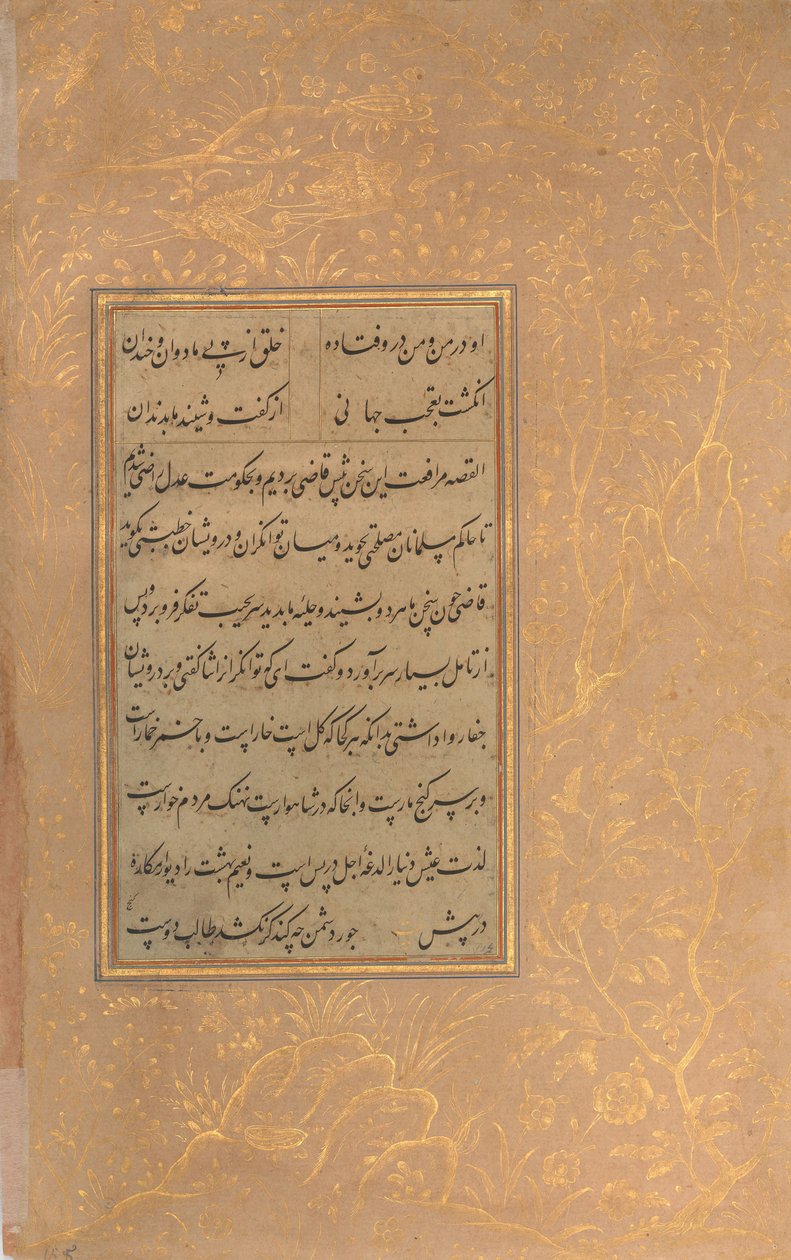 او در من و من درو فتاده خلق از پی ما دوان و خندان
انکشت تعجب جهانی از کفت و شنید ما بدندان
القصه مرافعت این سخن پیش قاضی بردیم و بحکومت عدل راضی شدیم
تا حاکم مسلمانان مصلحتی بجوید و میان توانکران و درویشان بکوید
قاضی چون سخن ما هر دو بشنید و حلیهٔ ما بدید سر بجیب تفکر فرو برد و پس
از تامل بسیار سر برآورد و کفت ای که توانکرانرا ثنا کفتی و بر درویشان
جفا روا داشتی بدانکه هر کجا که کل است خار است و با خمر خمار است
و بر سر کنج مارست و انجا که در شاهوارست نهنک مردم خوارست
لذت عیش دنیا را لدغهٔ اجل در پس است و نعیم بهشت را دیوار مکاره
در پیش جور دشمن چه کند کر نکشد طالب دوست
کنج